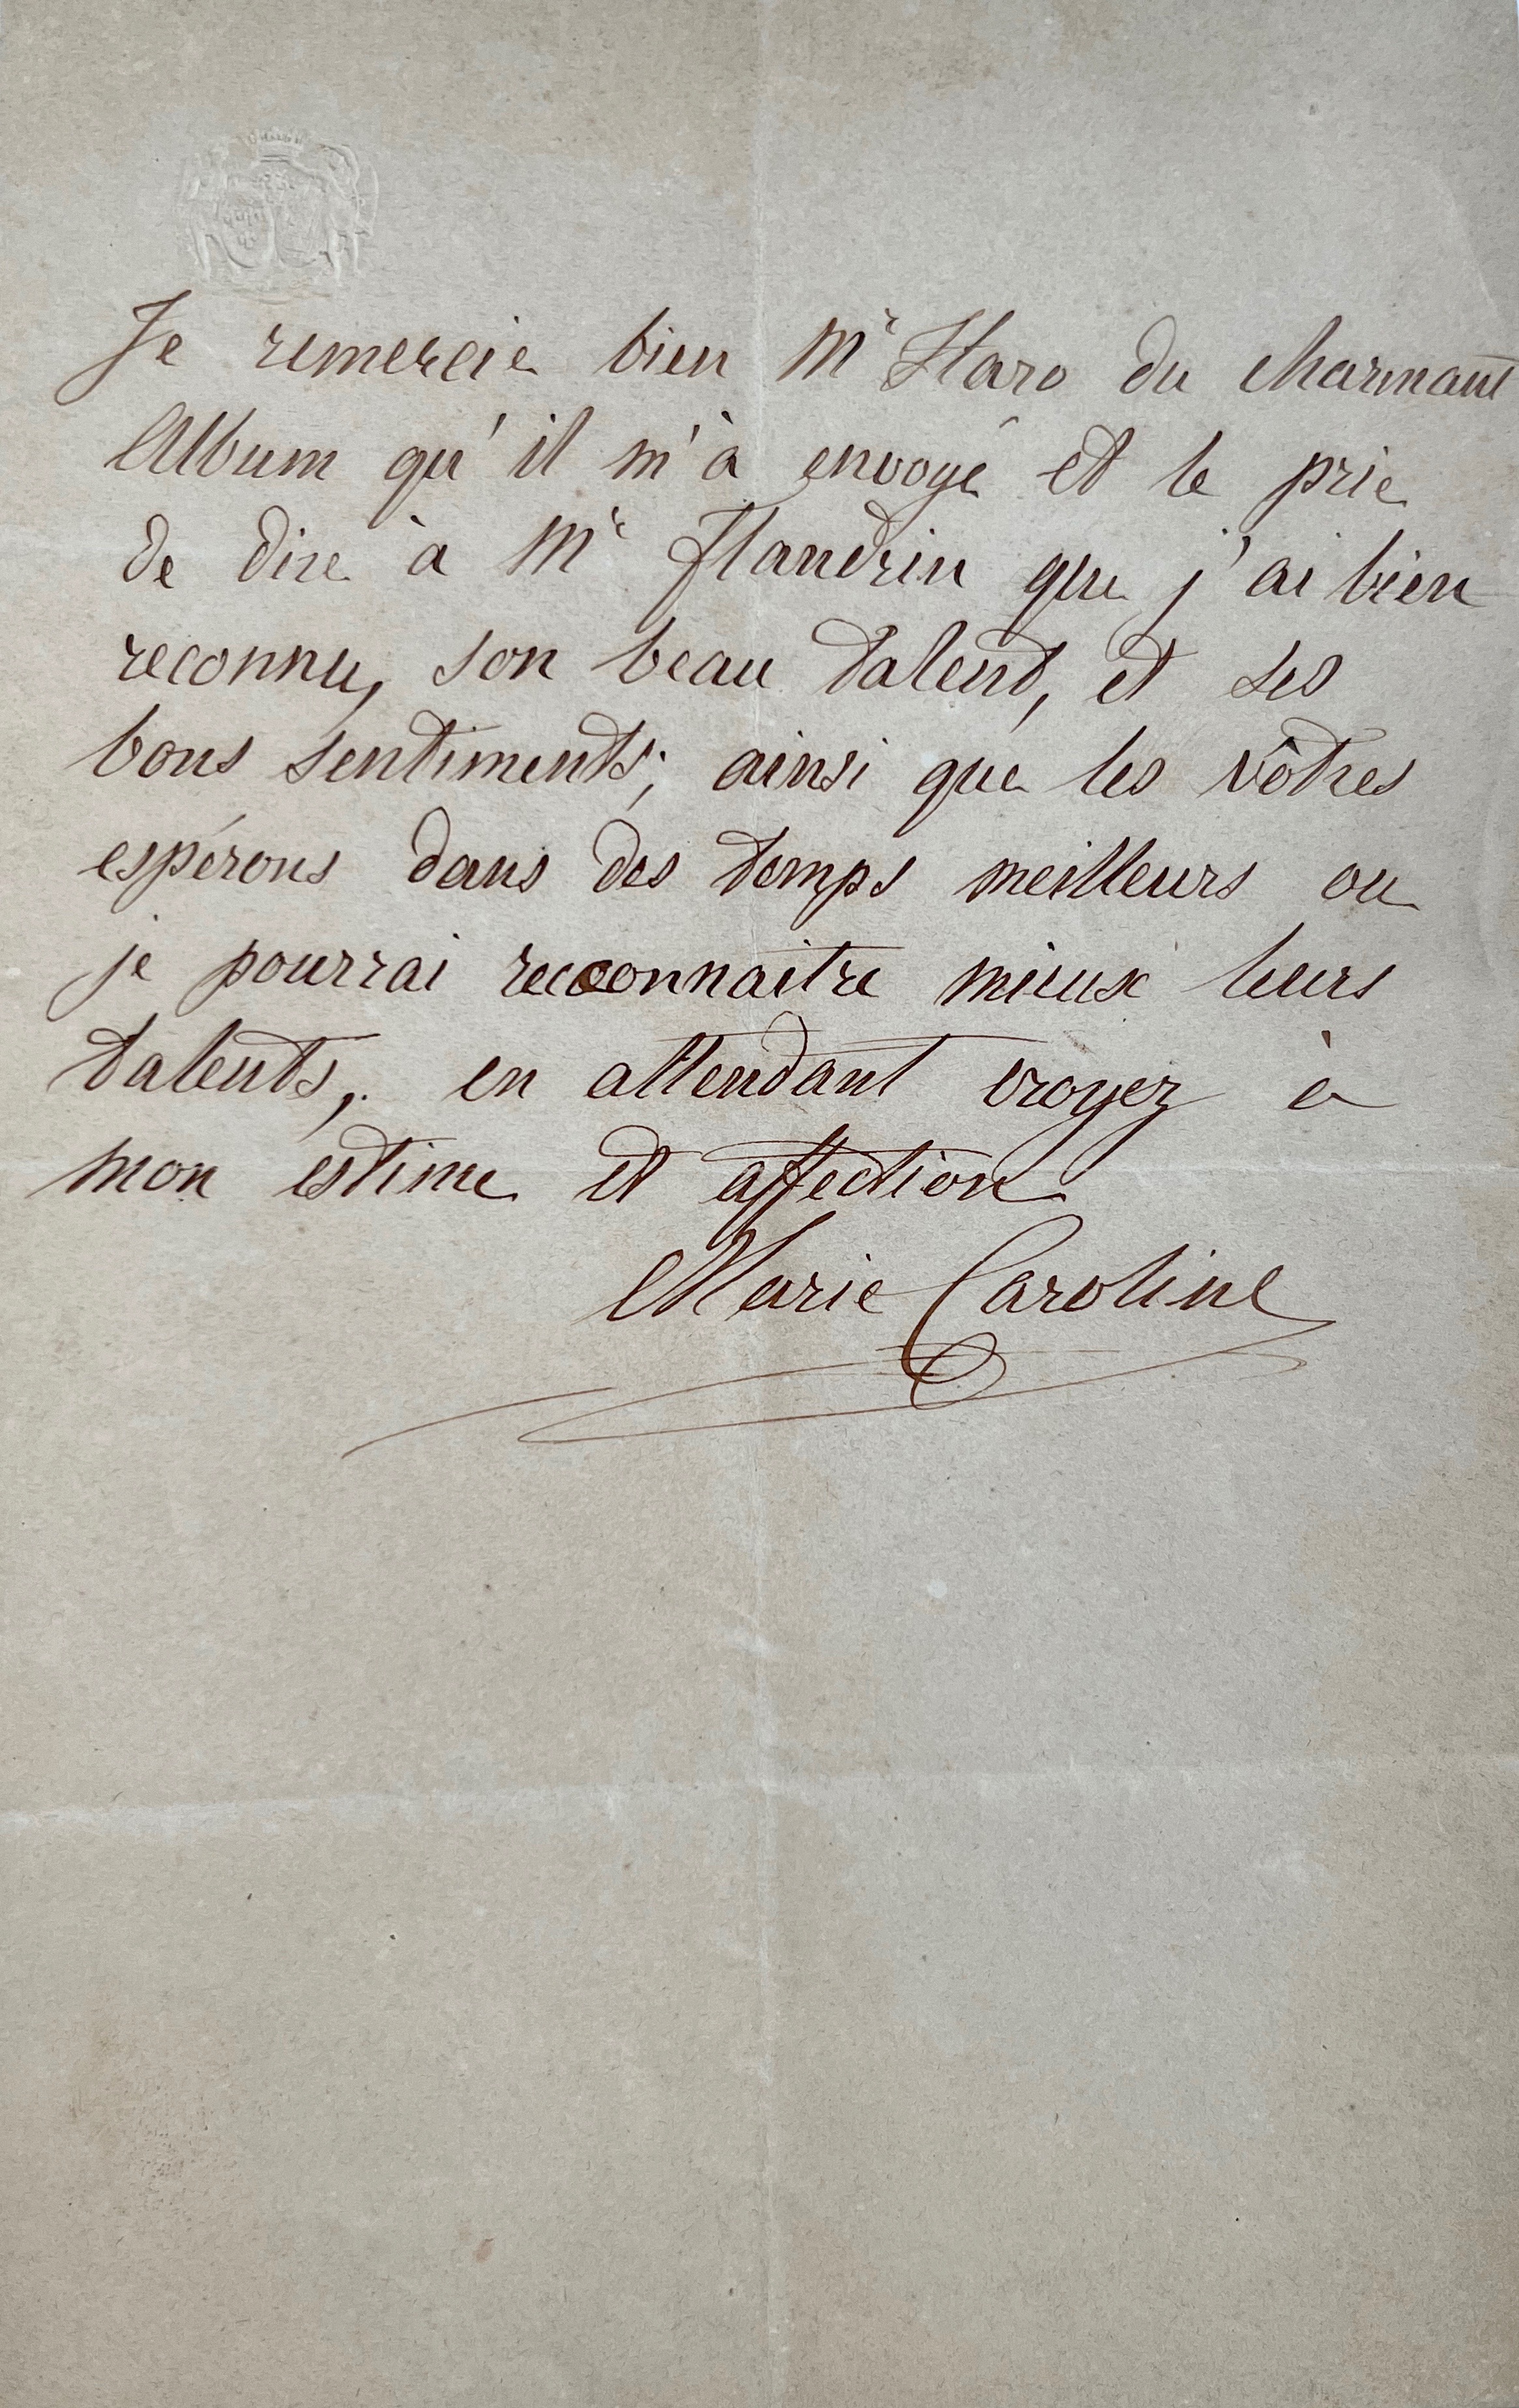 Je remercie bien Mr Haro du charmant
Album qu'il m'à envoyé et le prie
de dire à Mr Flandrin que j'ai bien
reconnu, son beau talent, et ses
bons sentiments; ainsi que les vôtres
espérons dans des temps meilleurs ou
je pourrai reconnaitre mieux leurs
talents, en attendant croyez à
mon estime et affection
Marie Caroline